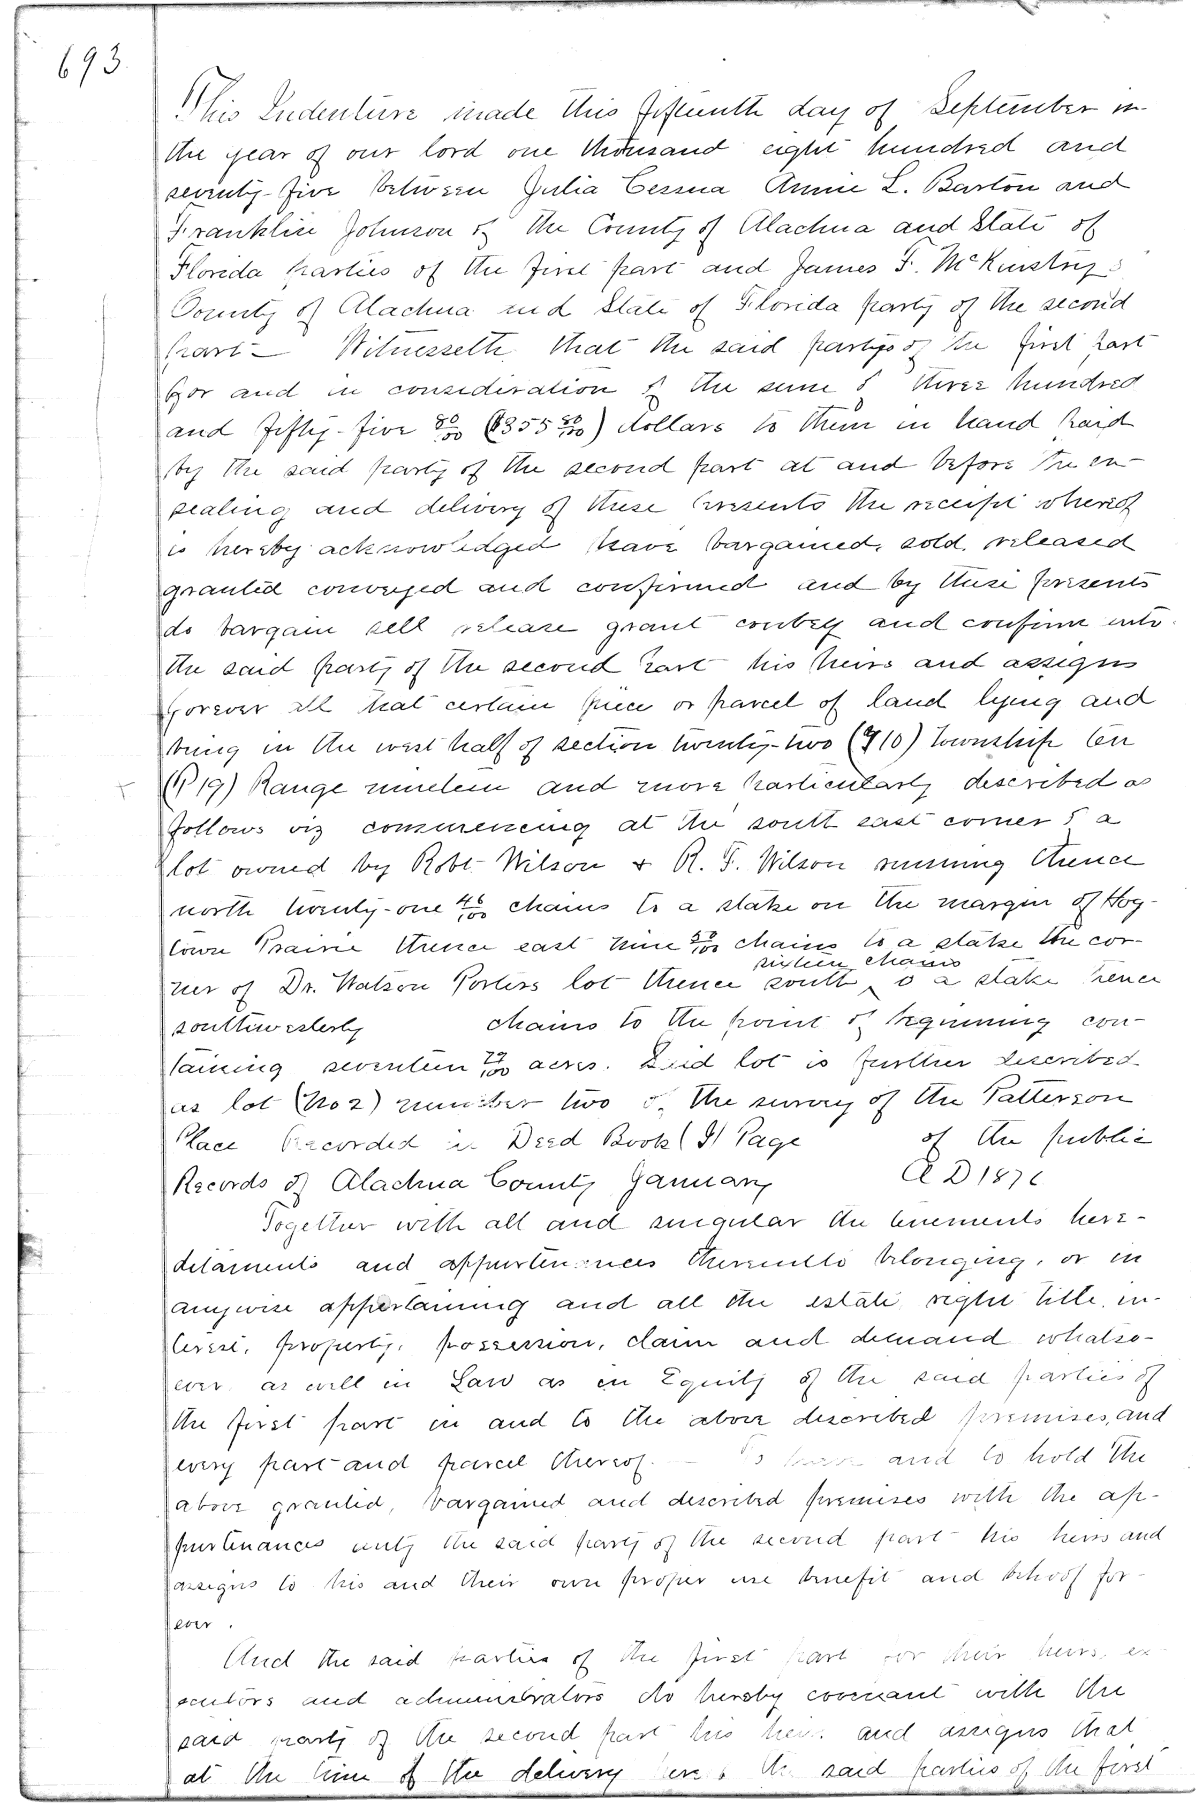 693
This Indenture made this fifteenth day of September in
the year of our lord one thousand eight hundred and
seventy-five between Julia Cessna Annie L. Barton and
Franklin Johnson of the County of Alachua and State of
Florida parties of the first part and James F. McKinstry
County of Alachua and State of Florida party of the second
part - Witnesseth that the said partys of the first part
for and in consideration of the sum of three hundred
and fifty-five 80/100 ($355 80/100) dollars to them in hand paid
by the said party of the second part at and before the en-
sealing and delivery of these presents the receipt whereof
is hereby acknowledged have bargained, sold, released
granted conveyed and confirmed and by these presents
do bargain sell release grant convey and confirm unto
the said party of the second part his heirs and assigns
forever all that certain piece or parcel of land lying and
being in the west half of section twenty-two (T10) Township ten
(R19) Range nineteen and more particularly described as
follows viz commencing at the south east corner of a
lot owned by Robt Wilson & R. F. Wilson running thence
north twenty-one 46/100 chains to a stake on the margin of Hog-
town Prairie thence east nine 50/100 chains to a stake the cor-
sixteen chains
ner of Dr. Watson Porters lot thence south ^ to a stake thence
southwesterly chains to the point of beginning con-
taining seventeen 79/100 acres. Said lot is further described
as lot (No 2) number two of the survey of the Patterson
Place Recorded in Deed Book (I) Page of the public
Records of Alachua County January A D 1876
Together with all and singular the tenements here-
ditaments and appurtenances thereunto belonging, or in
anywise appertaining and all the estate right title in-
terest, property, possession, claim and demand whatso-
ever as well in Law as in Equity of the said parties of
the first part in and to the above described premises, and
every part and parcel thereof. - To have and to hold the
above granted, bargained and described premises with the ap-
purtenances unty the said party of the second part his heirs and
assigns to his and their own proper use benefit and behoof for-
ever.
And the said parties of the first part for their heirs, ex-
ecutors and administrators do hereby covenant with the
said party of the second part his heirs and assigns that
at the time of the delivery hereof the said parties of the first